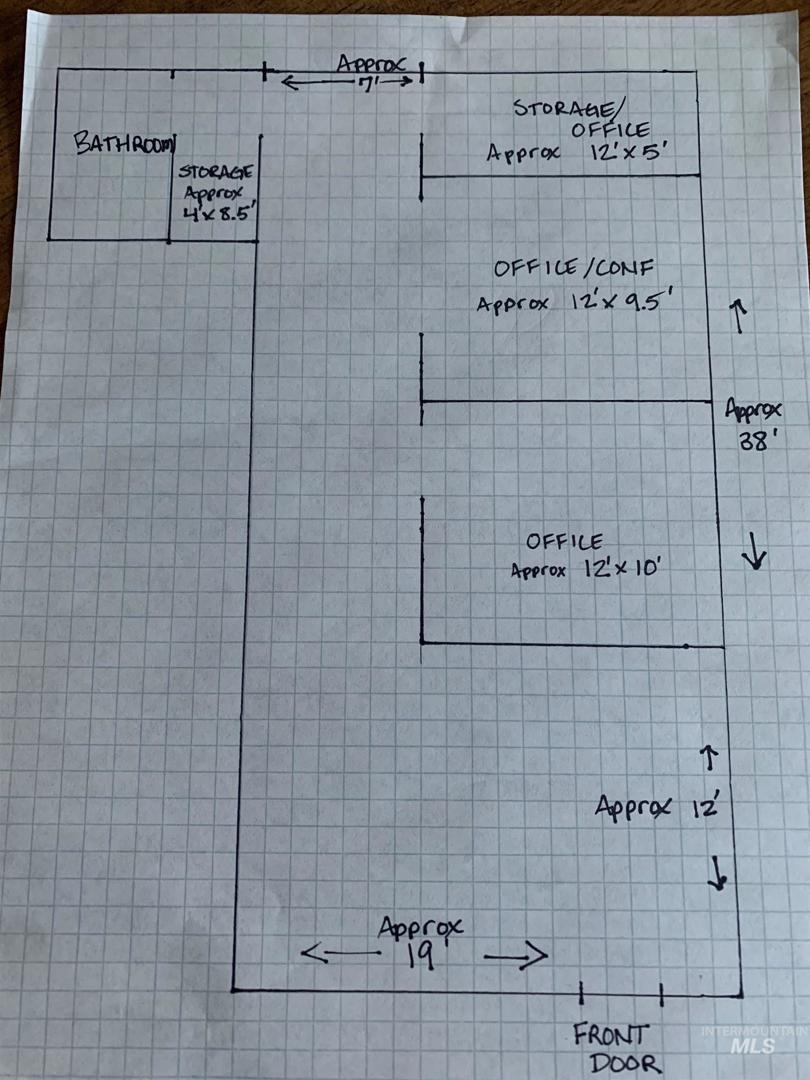 Approx
7'
STORAGE/
OFFICE
Approx 12'x5'
BATHROOM
STORAGE
Approx
4'x8.5'
OFFICE/CONF
Approx 12'x9.5'
Approx
38'
OFFICE
Approx 12'x10'
Approx 12'
Approx
19'
FRONT
DOOR
INTERMOUNTAIN
MLS